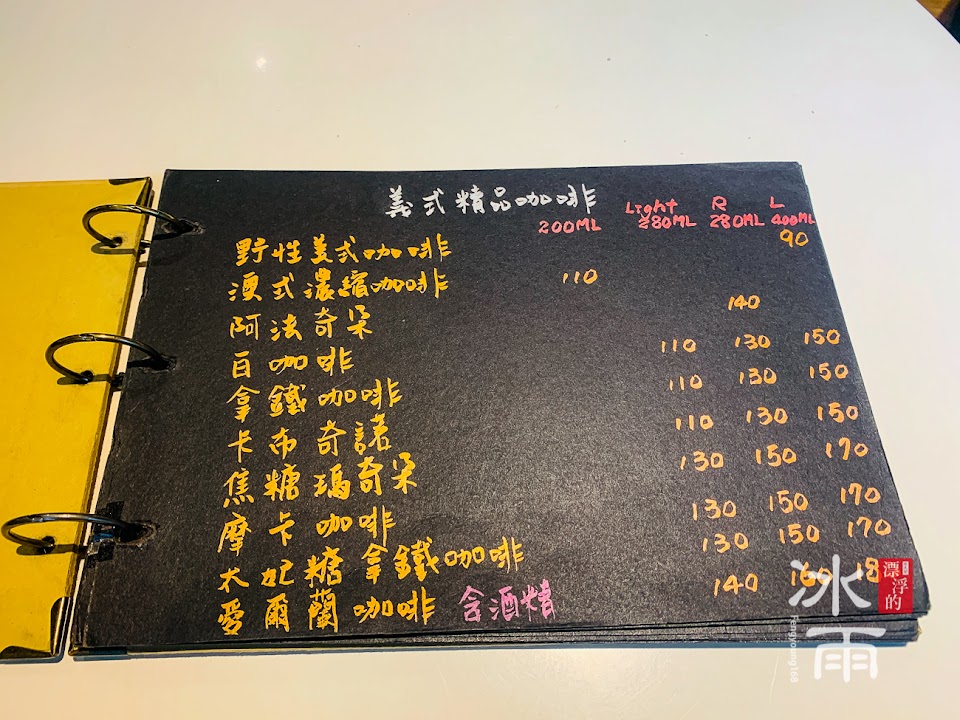 義式精品咖啡
Light R L
200ML 280ML 280ML 400ML
野性美式咖啡 90
澳式濃縮咖啡 110
阿法奇朵 140
白咖啡 110 130 150
拿鐵咖啡 110 130 150
卡布奇諾 110 130 150
焦糖瑪奇朵 130 150 170
摩卡咖啡 130 150 170
太妃糖拿鐵咖啡 130 150 170
愛爾蘭咖啡 含酒精 140 160
漂浮的
冰雨